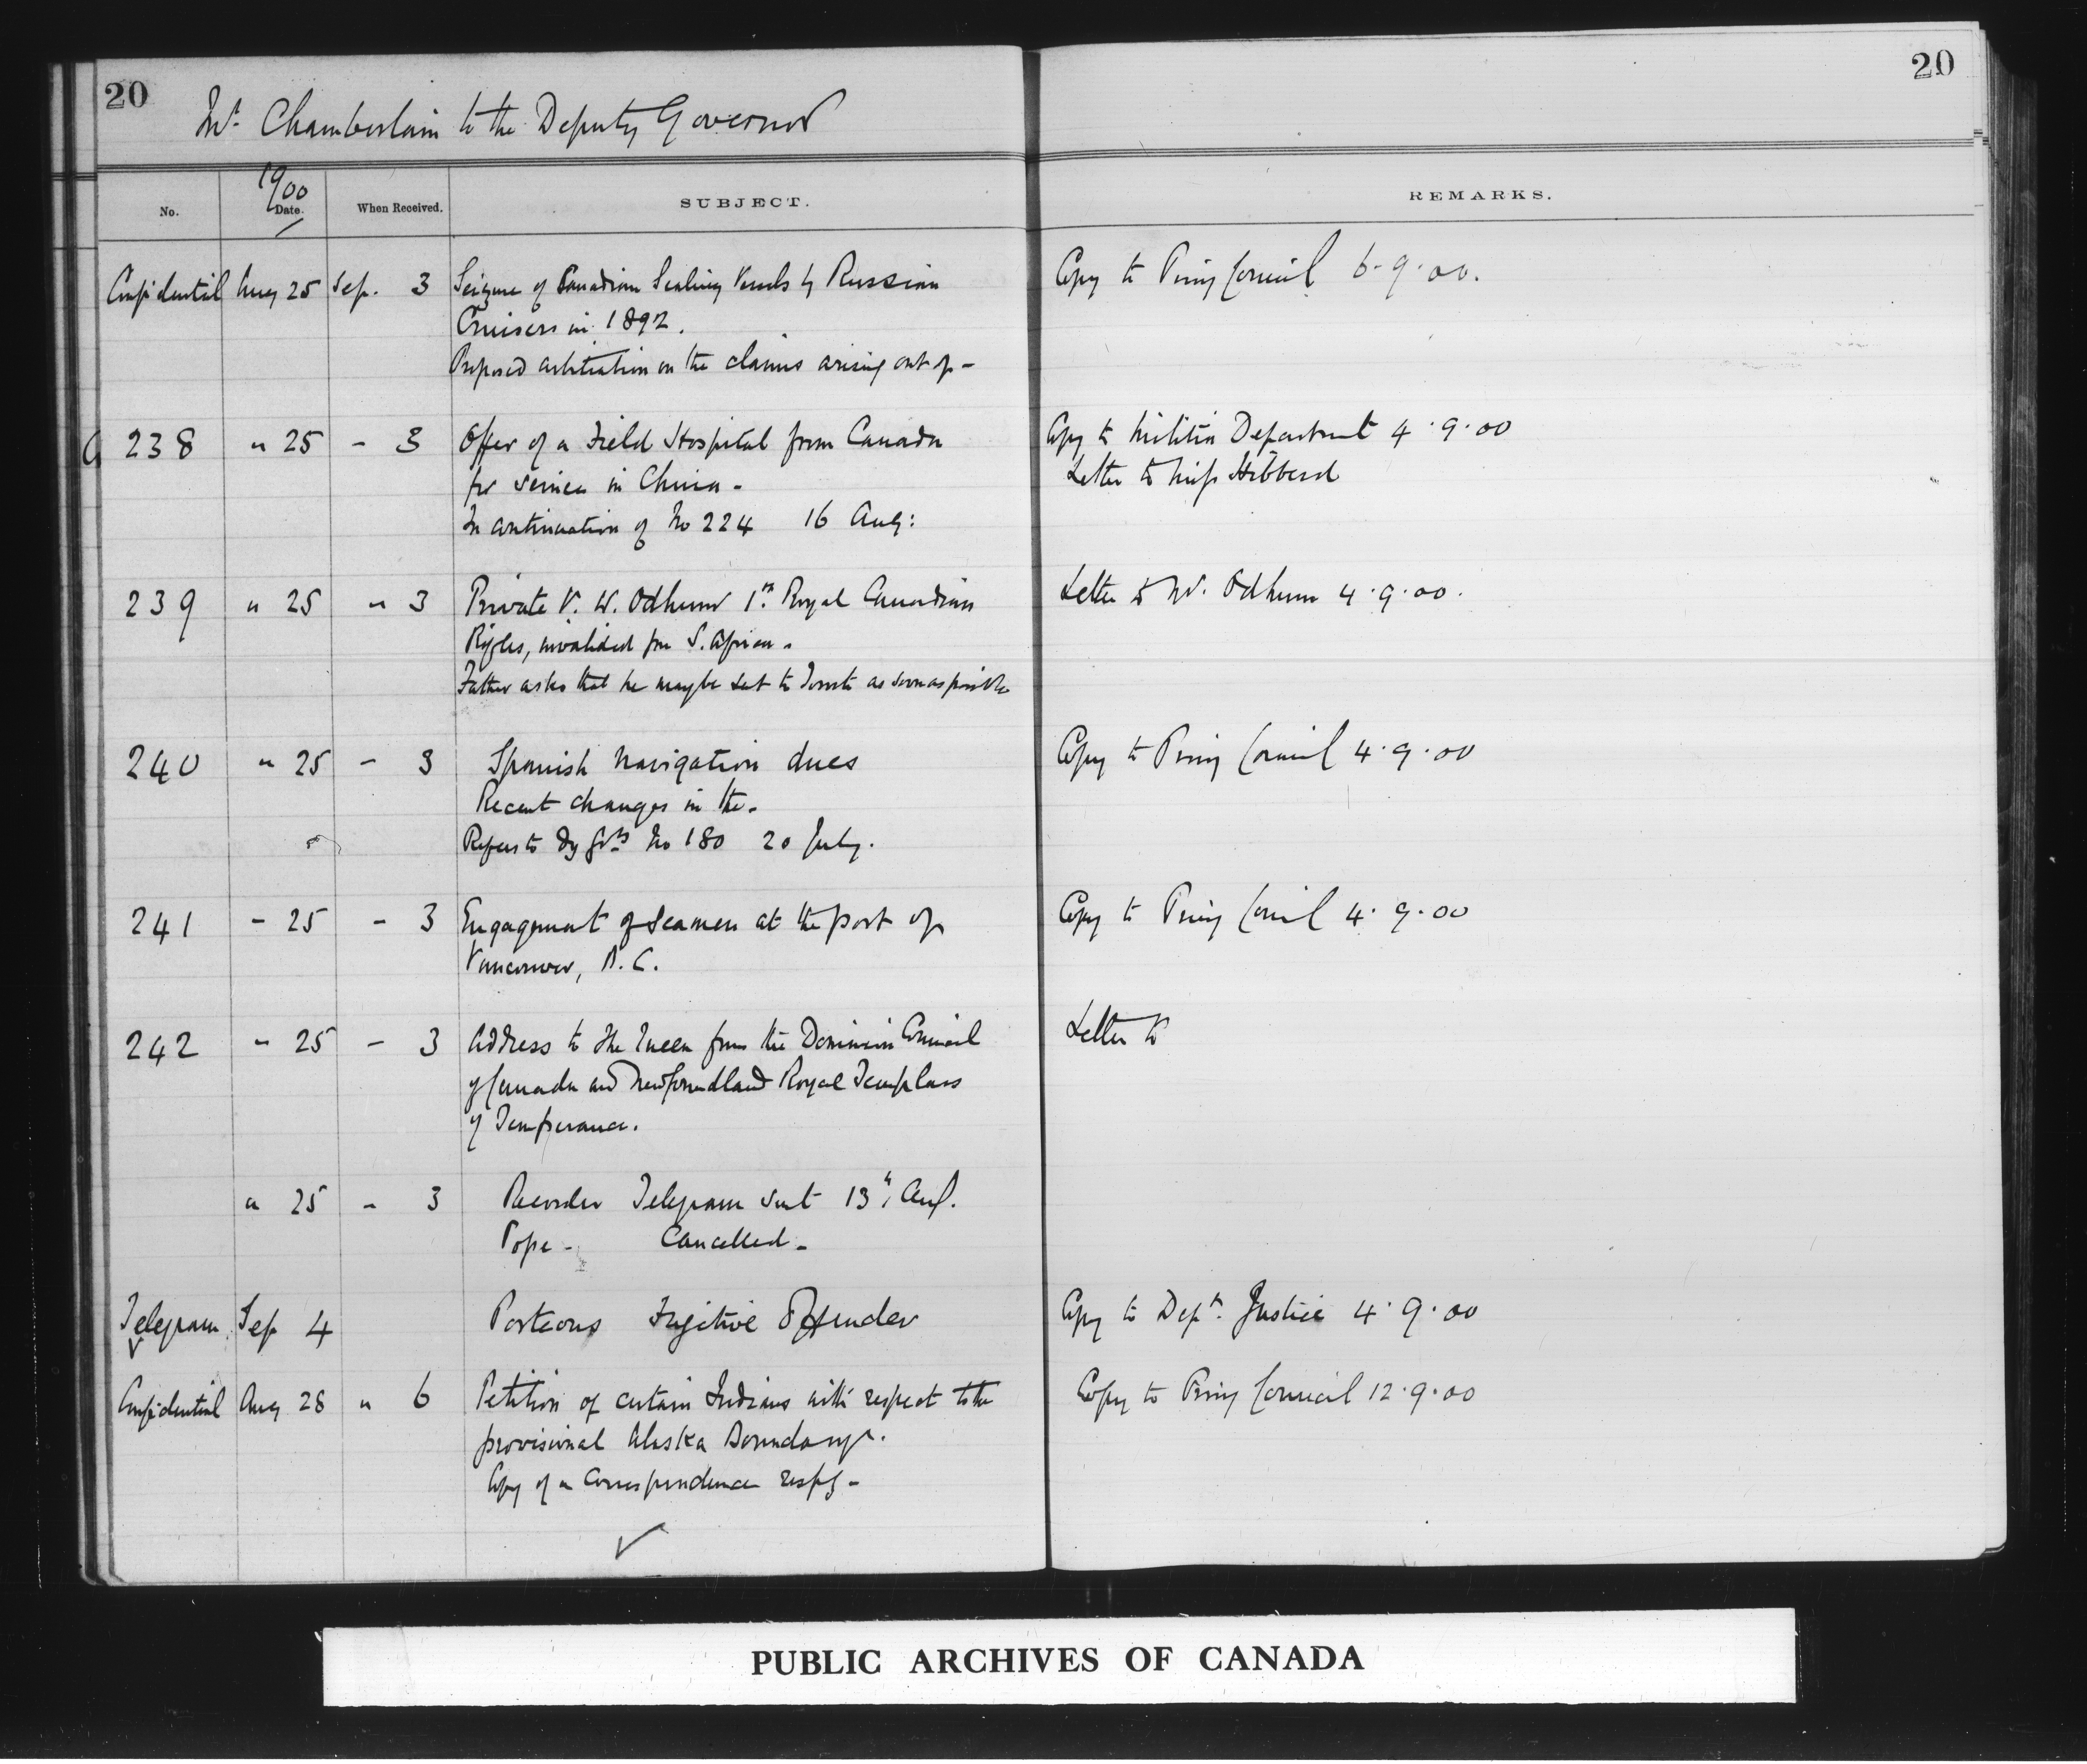 20
20
Mr. Chamberlain to the Deputy Governor
1900
No. Date. When Received. SUBJECT. REMARKS.
Confidential Aug 25 Sep. 3 Seizure of Canadian Sealing Vessels by Russian Copy to Privy Council 6.9.00.
Cruisers in 1892.
Proposed arbitration on the claims arising out of -
G 238 " 25 - 3 Offer of a Field Hospital from Canada Copy to Militia Department 4.9.00
for service in China - Letter to Miss Hibberd
In continuation of No 224 16 Aug:
239 " 25 " 3 Private V. W. Odlum 1st Royal Canadian Letter to Mr. Odlum 4.9.00.
Rifles, invalided from S. Africa.
Father asks that he may be sent to Toronto as soon as possible
240 " 25 - 3 Spanish Navigation dues Copy to Privy Council 4.9.00
Recent changes in the.
Refers to Dy Gvrs No 180 20 July.
241 - 25 - 3 Engagement of Seamen at the port of Copy to Privy Council 4.9.00
Vancouver, B.C.
242 " 25 - 3 Address to the Queen from the Dominion Council Letter to
of Canada and Newfoundland Royal Templars
of Temperance.
" 25 - 3 Recorder Telegram sent 13th Aug.
Pope - Cancelled -
Telegram Sep 4 Porteous Fugitive Offender Copy to Dept. Justice 4.9.00
Confidential Aug 28 " 6 Petition of certain Indians with respect to the Copy to Privy Council 12.9.00
provisional Alaska Boundary.
Copy of a Correspondence respg -
PUBLIC ARCHIVES OF CANADA